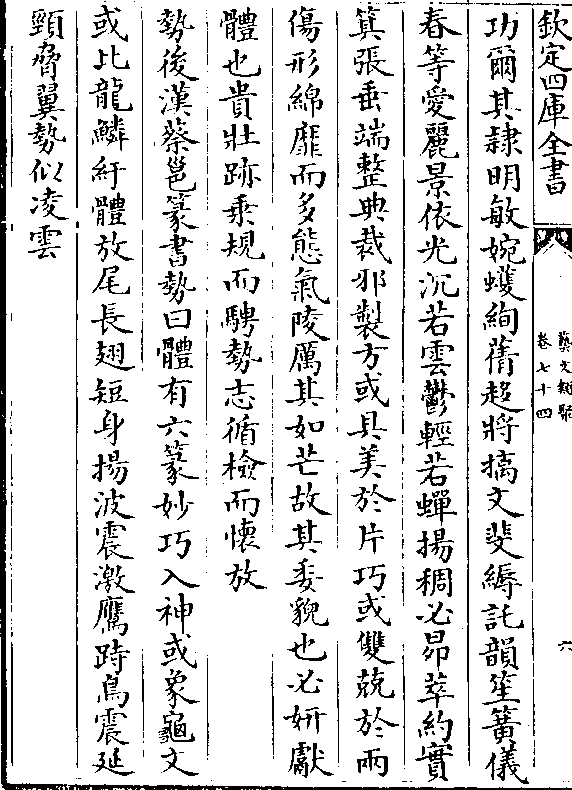 欽定四庫全書
藝文類聚
卷七十四
六
功爾其隷明敏婉蠖絢蒨超將摛文斐縟託韻笙簧儀
春等愛麗景依光沉若雲鬱輕若蟬揚稠必昂萃約實
箕張垂端整典裁邪製方或具美於片巧或雙兢於兩
傷形綿靡而多態氣陵厲其如芒故其委貌也必妍獻
體也貴壯跡乘規而騁勢志循檢而懷放
勢後漢蔡邕篆書勢曰體有六篆妙巧入神或象龜文
或比龍鱗紆體放尾長翅短身揚波震激鷹跱鳥震延
頸脅翼勢似凌雲